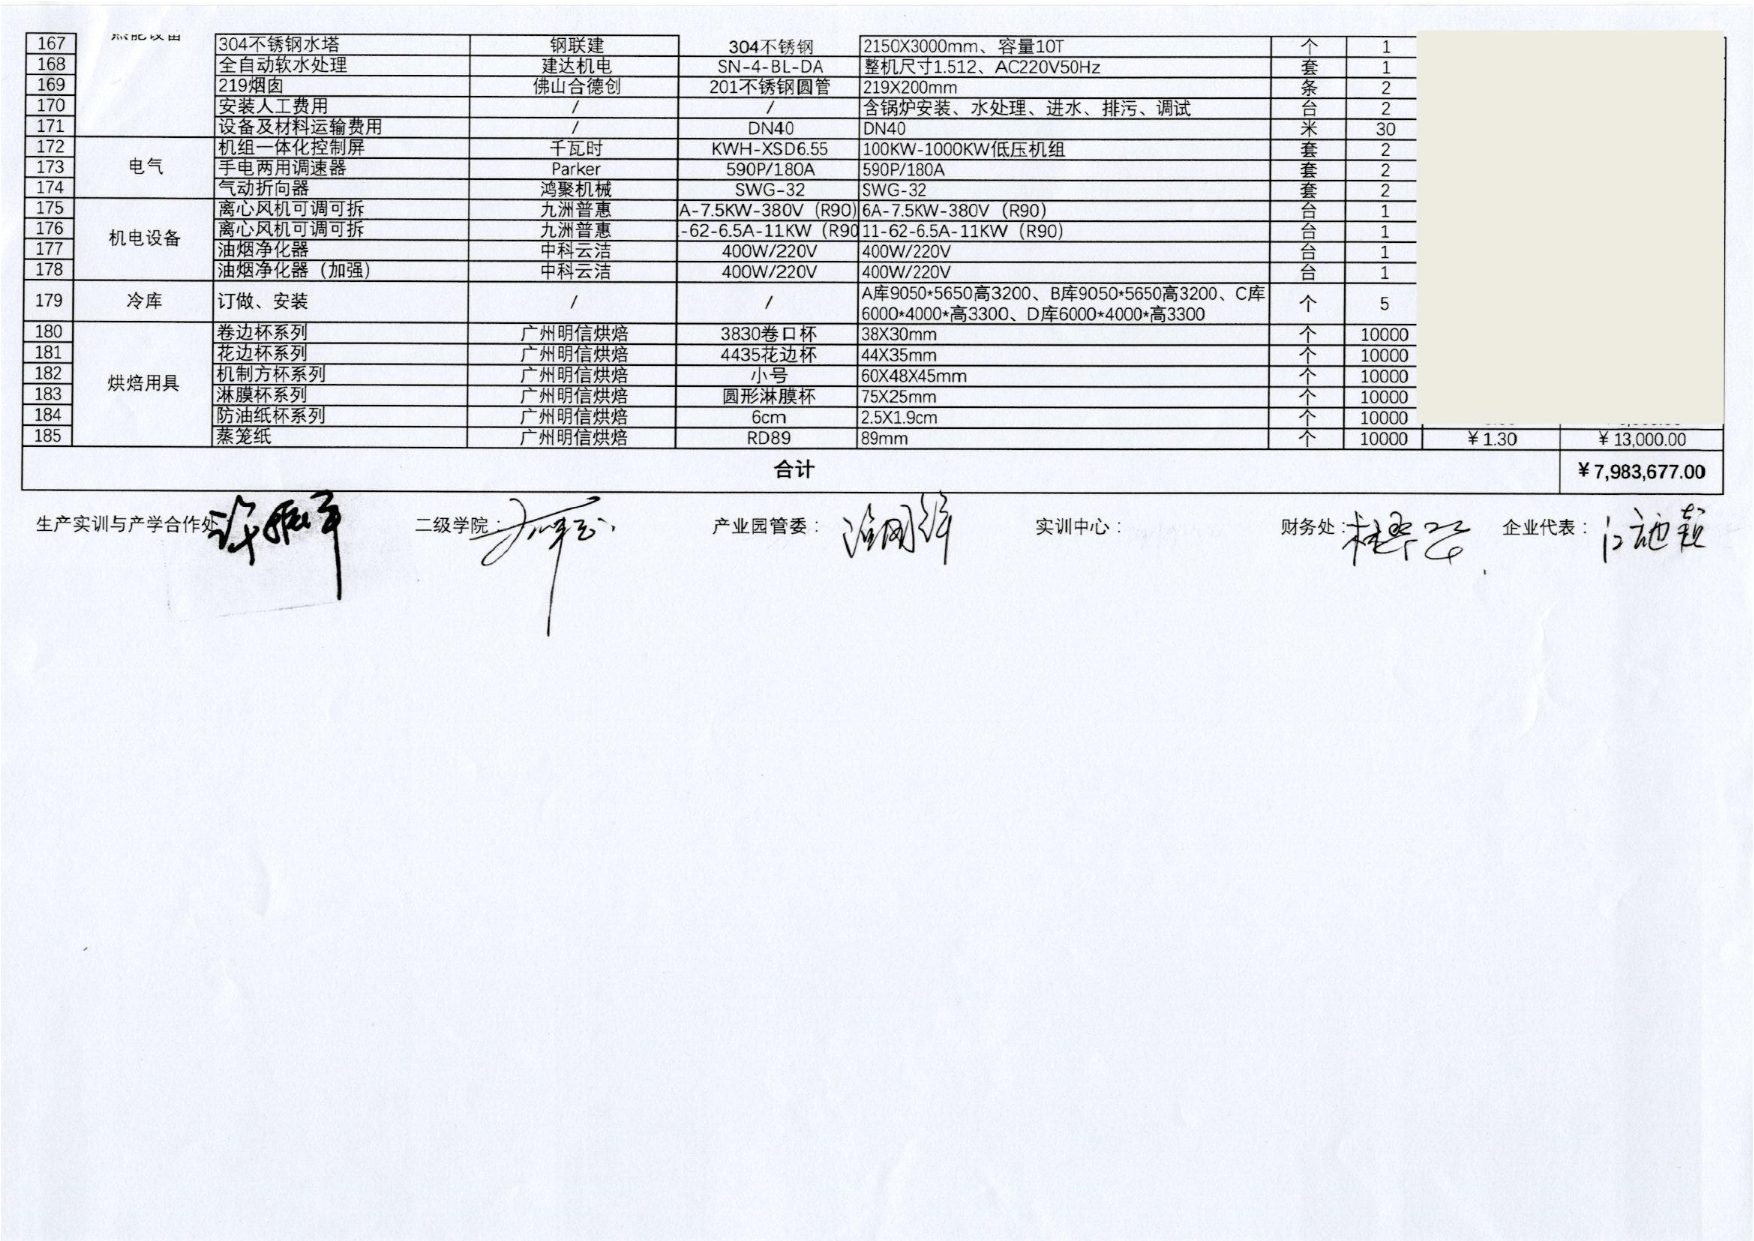 167 304不锈钢水塔 钢联建 304不锈钢 2150X3000mm、容量10T 个 1
168 全自动软水处理 建达机电 SN-4-BL-DA 整机尺寸1.512、AC220V50Hz 套 1
169 219烟囱 佛山合德创 201不锈钢圆管 219X200mm 条 2
170 安装人工费用 / / 含锅炉安装、水处理、进水、排污、调试 台 2
171 设备及材料运输费用 / DN40 DN40 米 30
172 机组一体化控制屏 千瓦时 KWH-XSD6.55 100KW-1000KW低压机组 套 2
173 电气 手电两用调速器 Parker 590P/180A 590P/180A 套 2
174 气动折向器 鸿聚机械 SWG-32 SWG-32 套 2
175 离心风机可调可拆 九洲普惠 A-7.5KW-380V（R90) 6A-7.5KW-380V（R90) 台 1
176 机电设备 离心风机可调可拆 九洲普惠 -62-6.5A-11KW（R90 11-62-6.5A-11KW（R90) 台 1
177 油烟净化器 中科云洁 400W/220V 400W/220V 台 1
178 油烟净化器（加强） 中科云洁 400W/220V 400W/220V 台 1
179 冷库 订做、安装 / / A库9050*5650高3200、B库9050*5650高3200、C库
6000*4000*高3300、D库6000*4000*高3300 个 5
180 卷边杯系列 广州明信烘焙 3830卷口杯 38X30mm 个 10000
181 花边杯系列 广州明信烘焙 4435花边杯 44X35mm 个 10000
182 烘焙用具 机制方杯系列 广州明信烘焙 小号 60X48X45mm 个 10000
183 淋膜杯系列 广州明信烘焙 圆形淋膜杯 75X25mm 个 10000
184 防油纸杯系列 广州明信烘焙 6cm 2.5X1.9cm 个 10000
185 蒸笼纸 广州明信烘焙 RD89 89mm 个 10000 ¥1.30 ¥13,000.00
合计 ¥7,983,677.00
生产实训与产学合作处 二级学院： 产业园管委： 实训中心： 财务处： 企业代表：